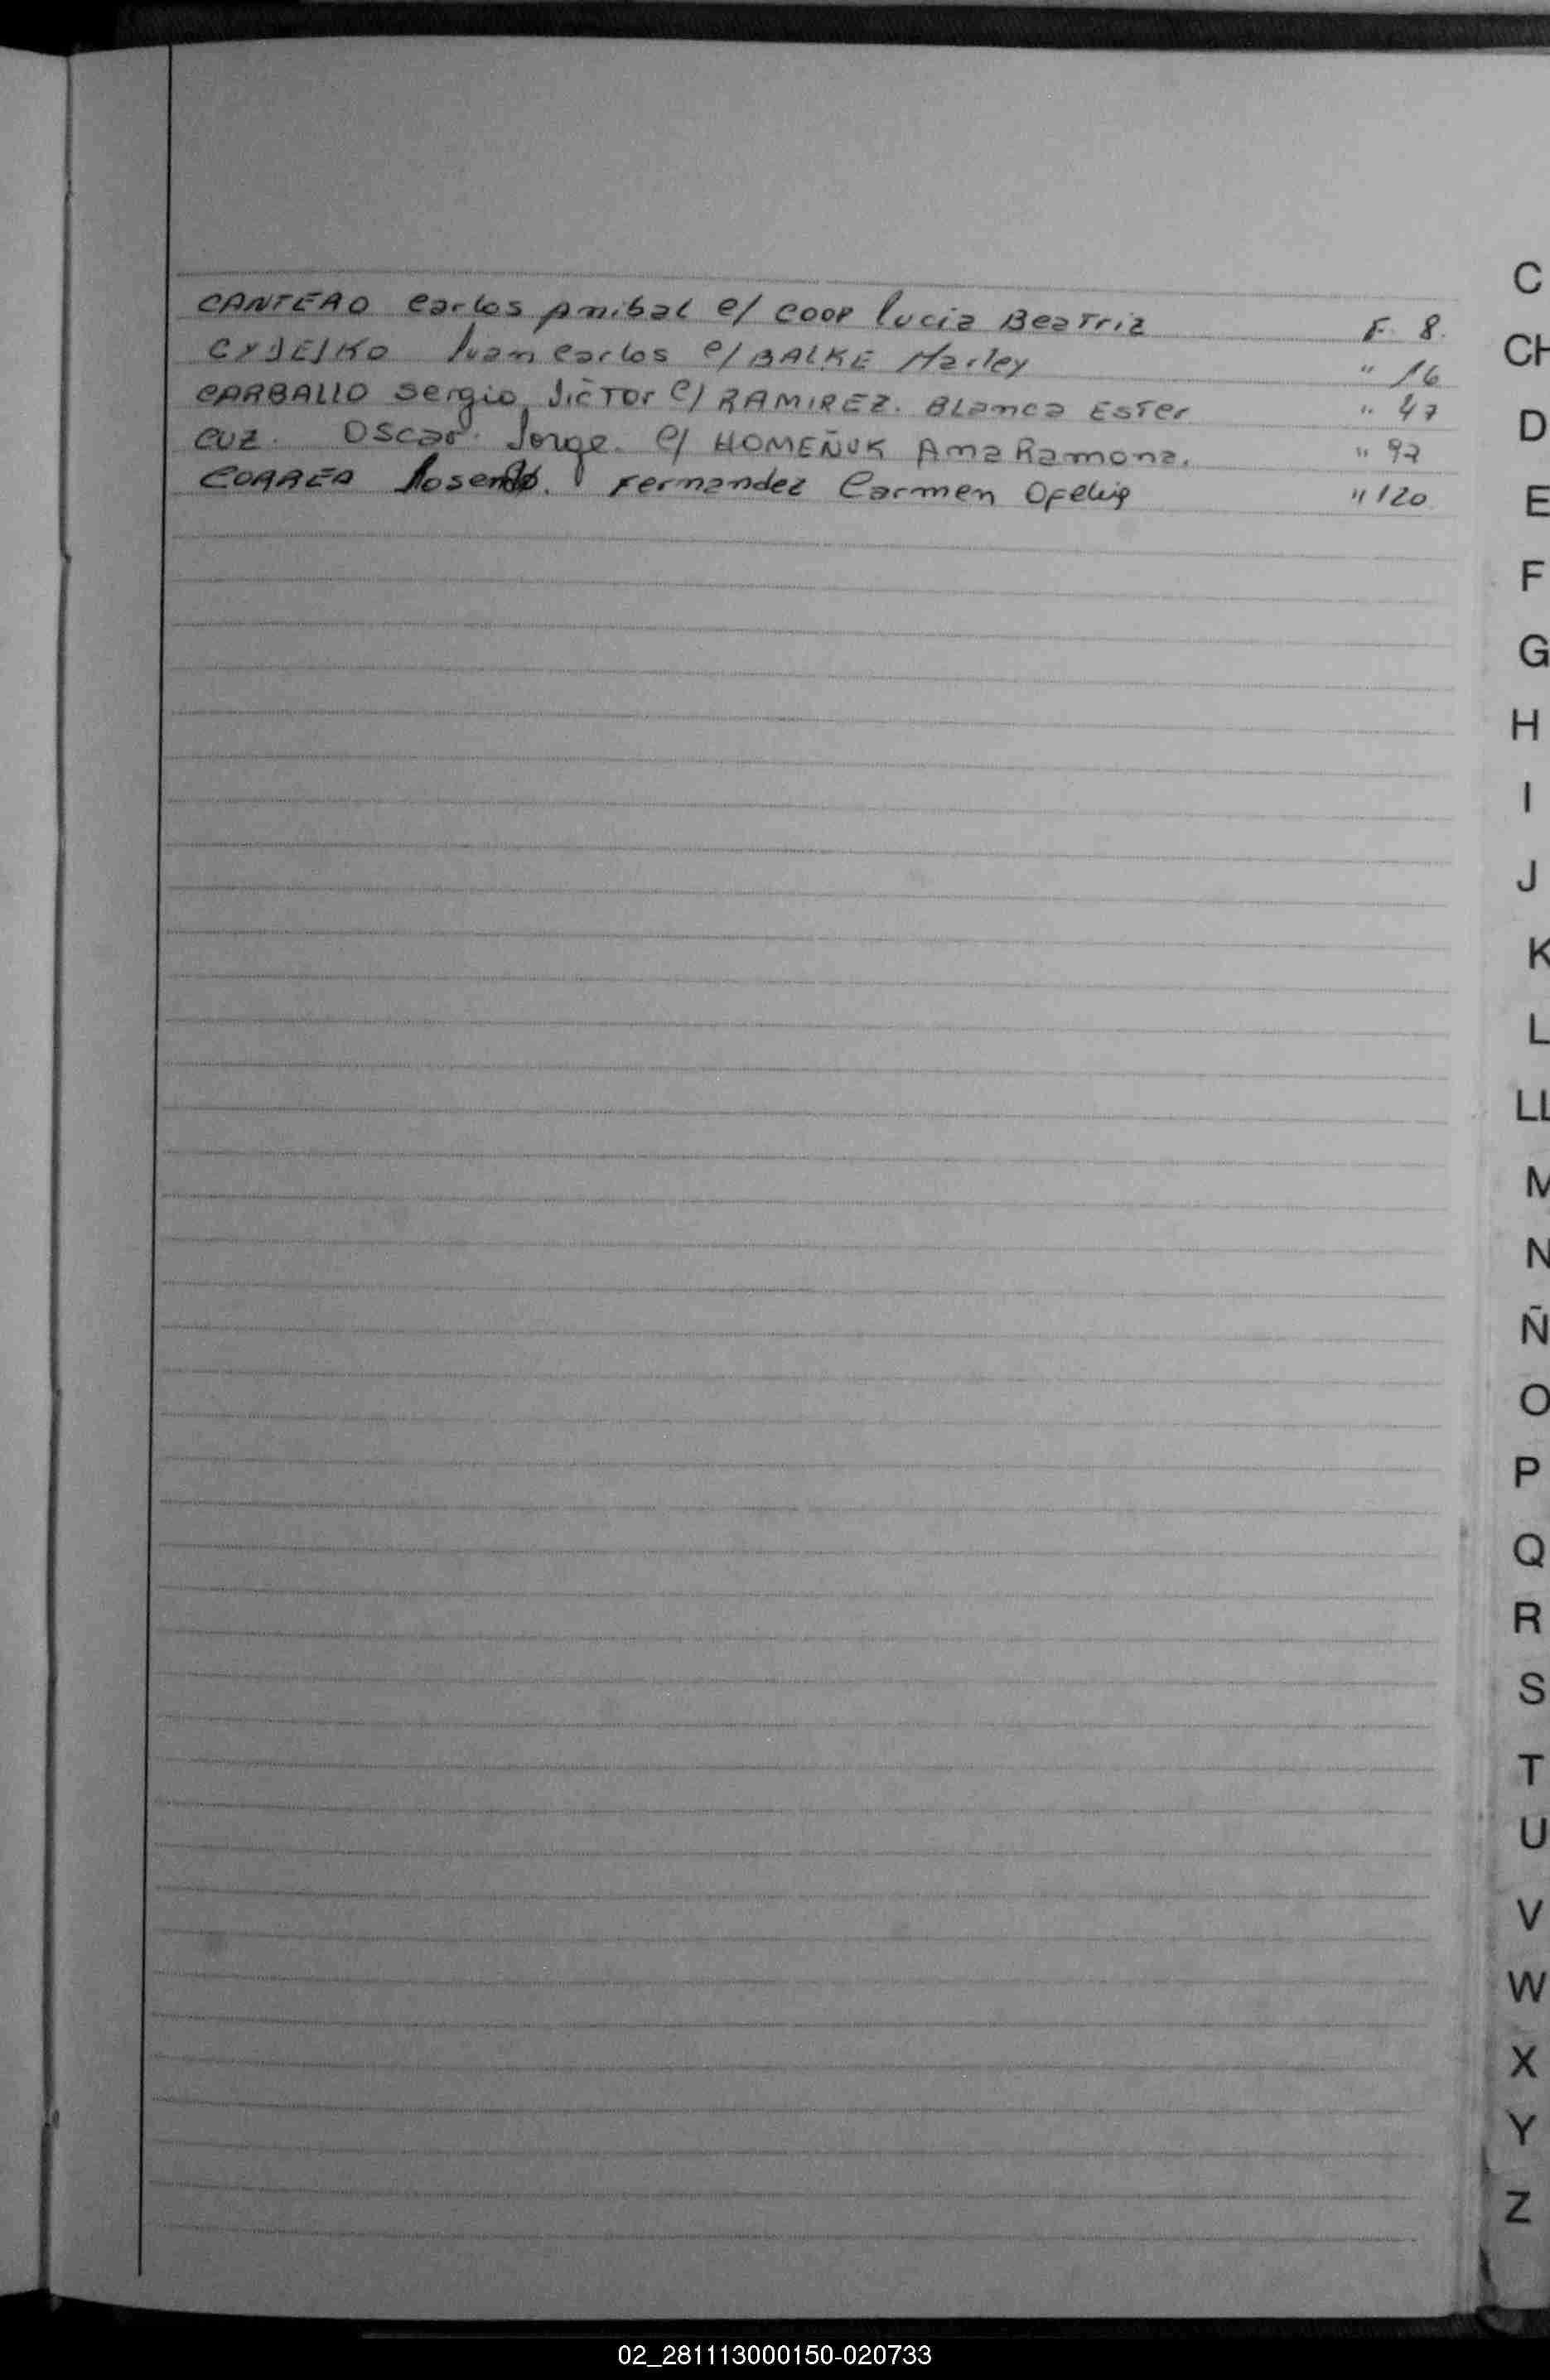 CANTERO Carlos Anibal c/ COOP Lucia Beatriz F. 8.
Juan Carlos c/ BALKE Marley " 16
CARBALLO Sergio Victor c/ RAMIREZ. Blanca Ester " 47
CUZ. Oscar. Jorge. c/ HOMEÑUK Ana Ramona. " 97
CORREA Rosendo. Fernandez Carmen Ofelia " 120
C
CH
D
E
F
G
H
I
J
K
L
LL
M
N
Ñ
O
P
Q
R
S
T
U
V
W
X
Y
Z
02_281113000150-020733